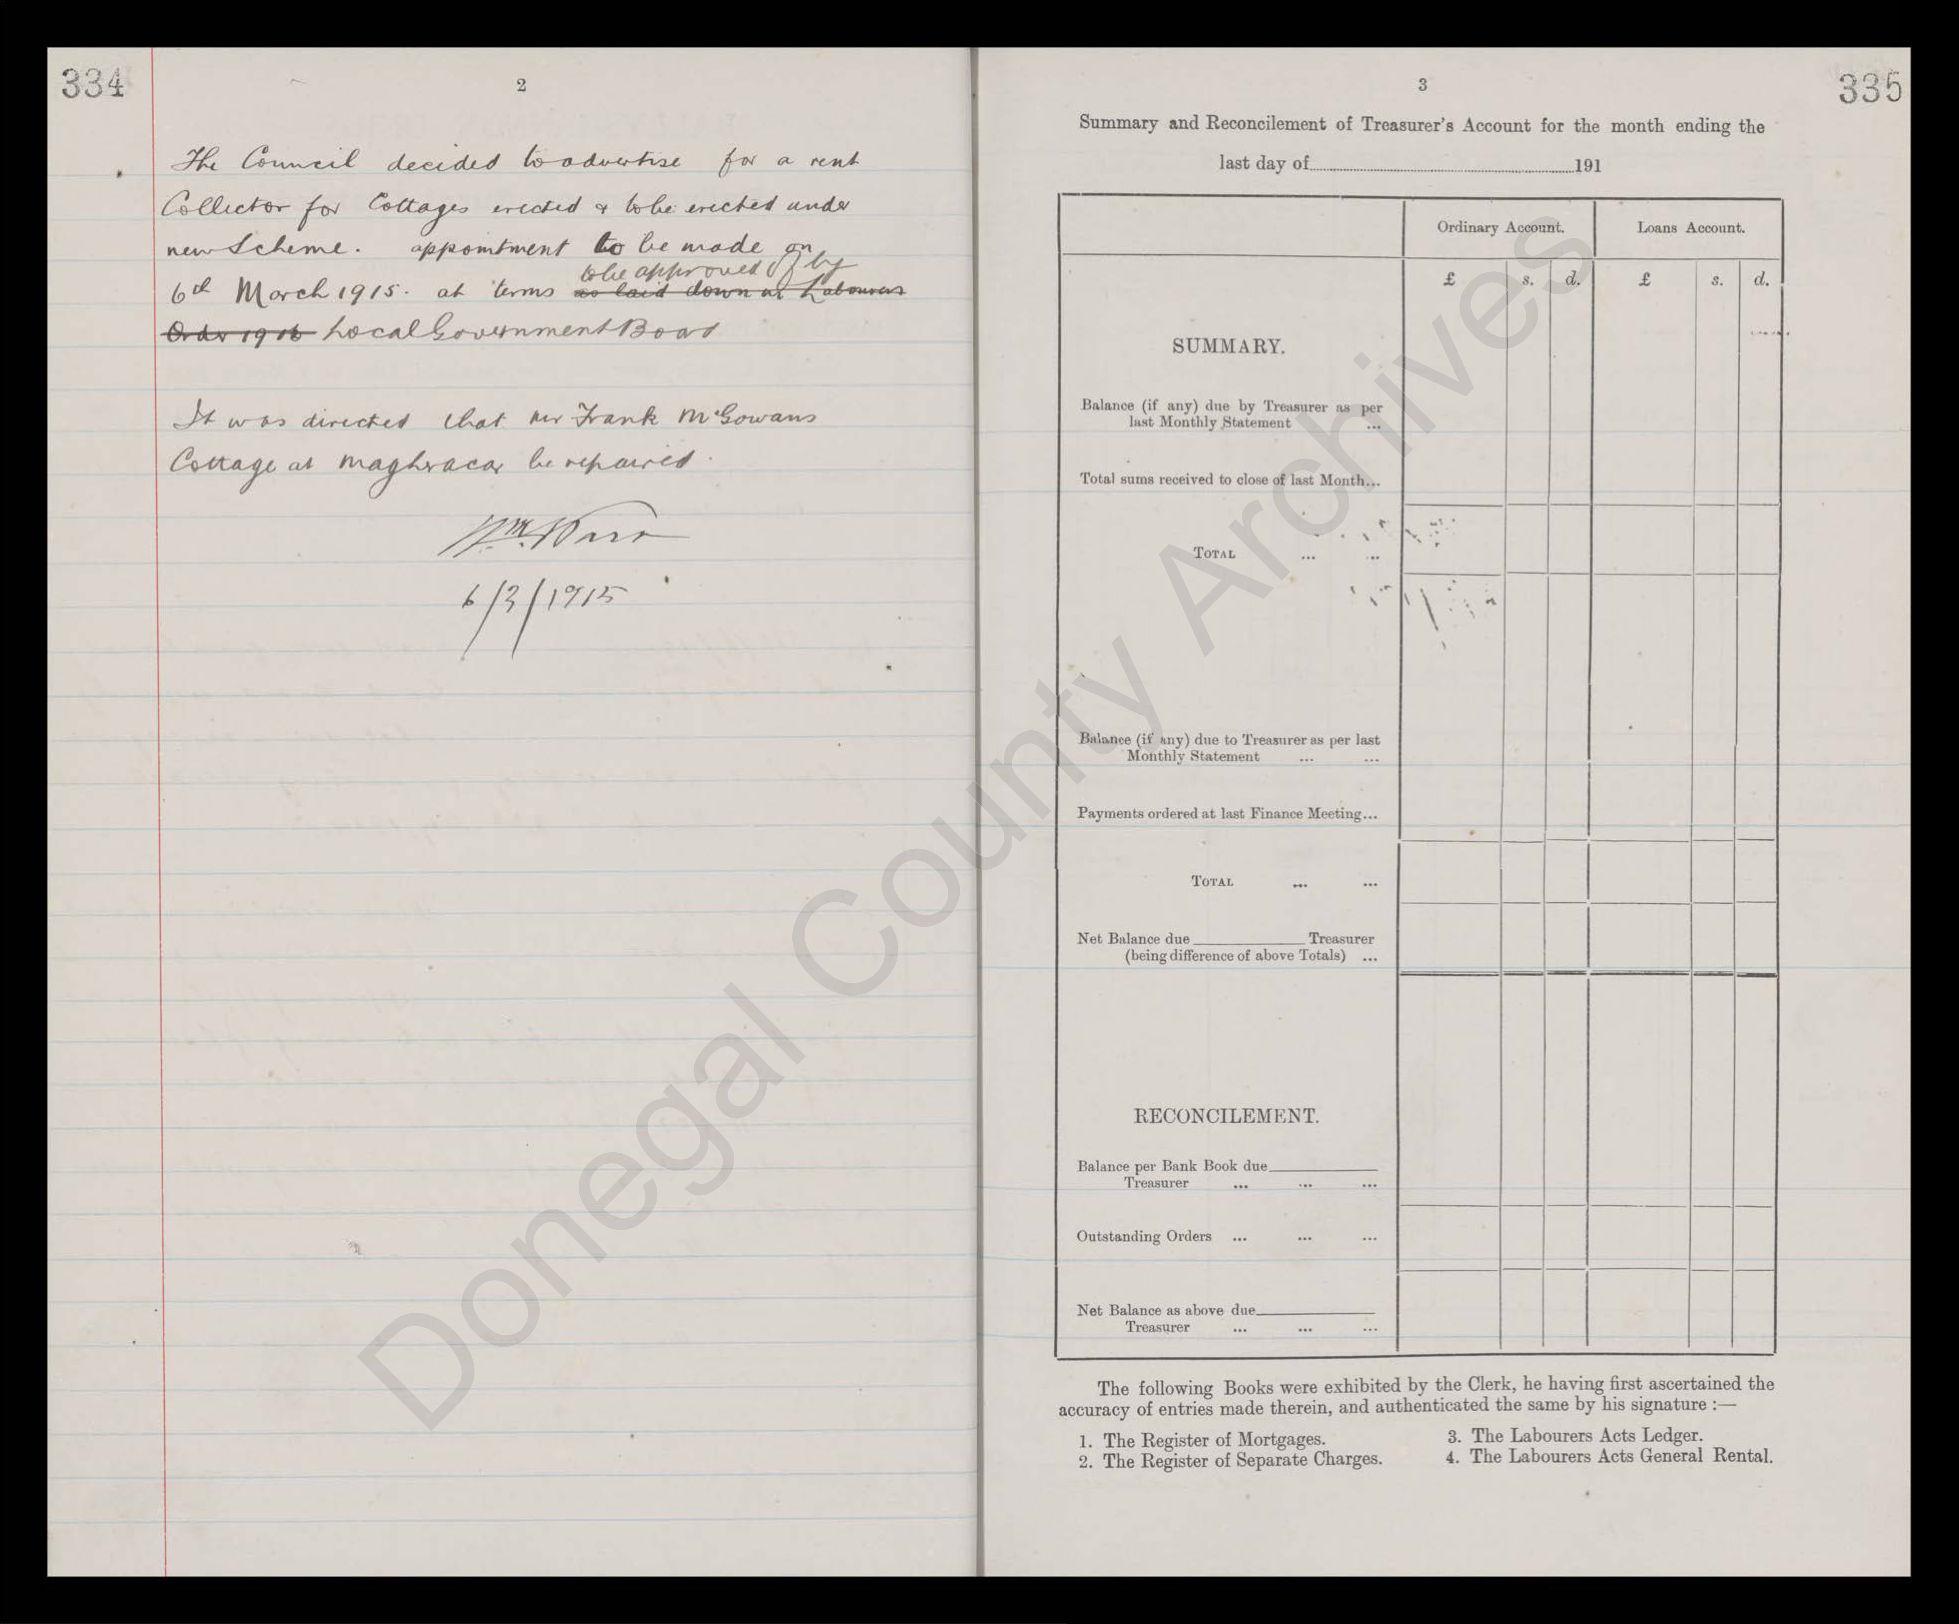 334
2
The Council decided to advertise for a rent
Collector for Cottages erected & to be erected under
new Scheme. appointment to be made on
to be approved of by
6th March 1915. at terms as laid down in Labourers
Order 1906 Local Government Board
It was directed that Mr Frank McGowans
Cottage at Maghracar be repaired.
Wm
6/3/1915
335
3
Summary and Reconcilement of Treasurer's Account for the month ending the
last day of 191
Ordinary Account. Loans Account.
£ s. d. £ s. d.
SUMMARY.
Balance (if any) due by Treasurer as per
last Monthly Statement ...
Total sums received to close of last Month...
TOTAL ... ...
Balance (if any) due to Treasurer as per last
Monthly Statement ... ...
Payments ordered at last Finance Meeting...
TOTAL ... ...
Net Balance due Treasurer
(being difference of above Totals) ...
RECONCILEMENT.
Balance per Bank Book due
Treasurer ... ... ...
Outstanding Orders ... ... ...
Net Balance as above due
Treasurer ... ... ...
The following Books were exhibited by the Clerk, he having first ascertained the
accuracy of entries made therein, and authenticated the same by his signature :—
1. The Register of Mortgages. 3. The Labourers Acts Ledger.
2. The Register of Separate Charges. 4. The Labourers Acts General Rental.
Donegal County Archives